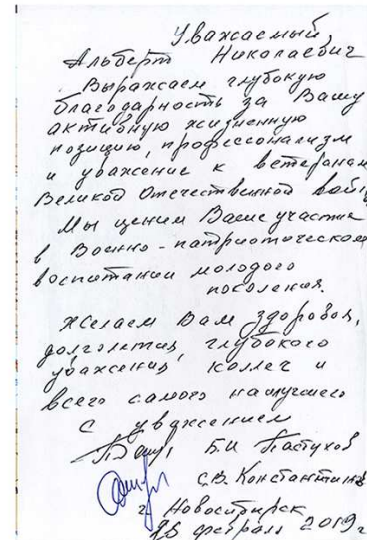 Уважаемый
Альберт Николаевич
Выражаем глубокую
благодарность за Вашу
активную жизненную
позицию, профессионализм
и уважение к ветеранам
Великой Отечественной войны
Мы ценим Ваше участие
в Военно-патриотическом
воспитании молодого
поколения.
Желаем Вам здоровья,
долголетия, глубокого
уважения коллег и
всего самого наилучшего
С уважением
Б.И Пастухов
С.В. Константинов
г. Новосибирск
февраля 2019 г